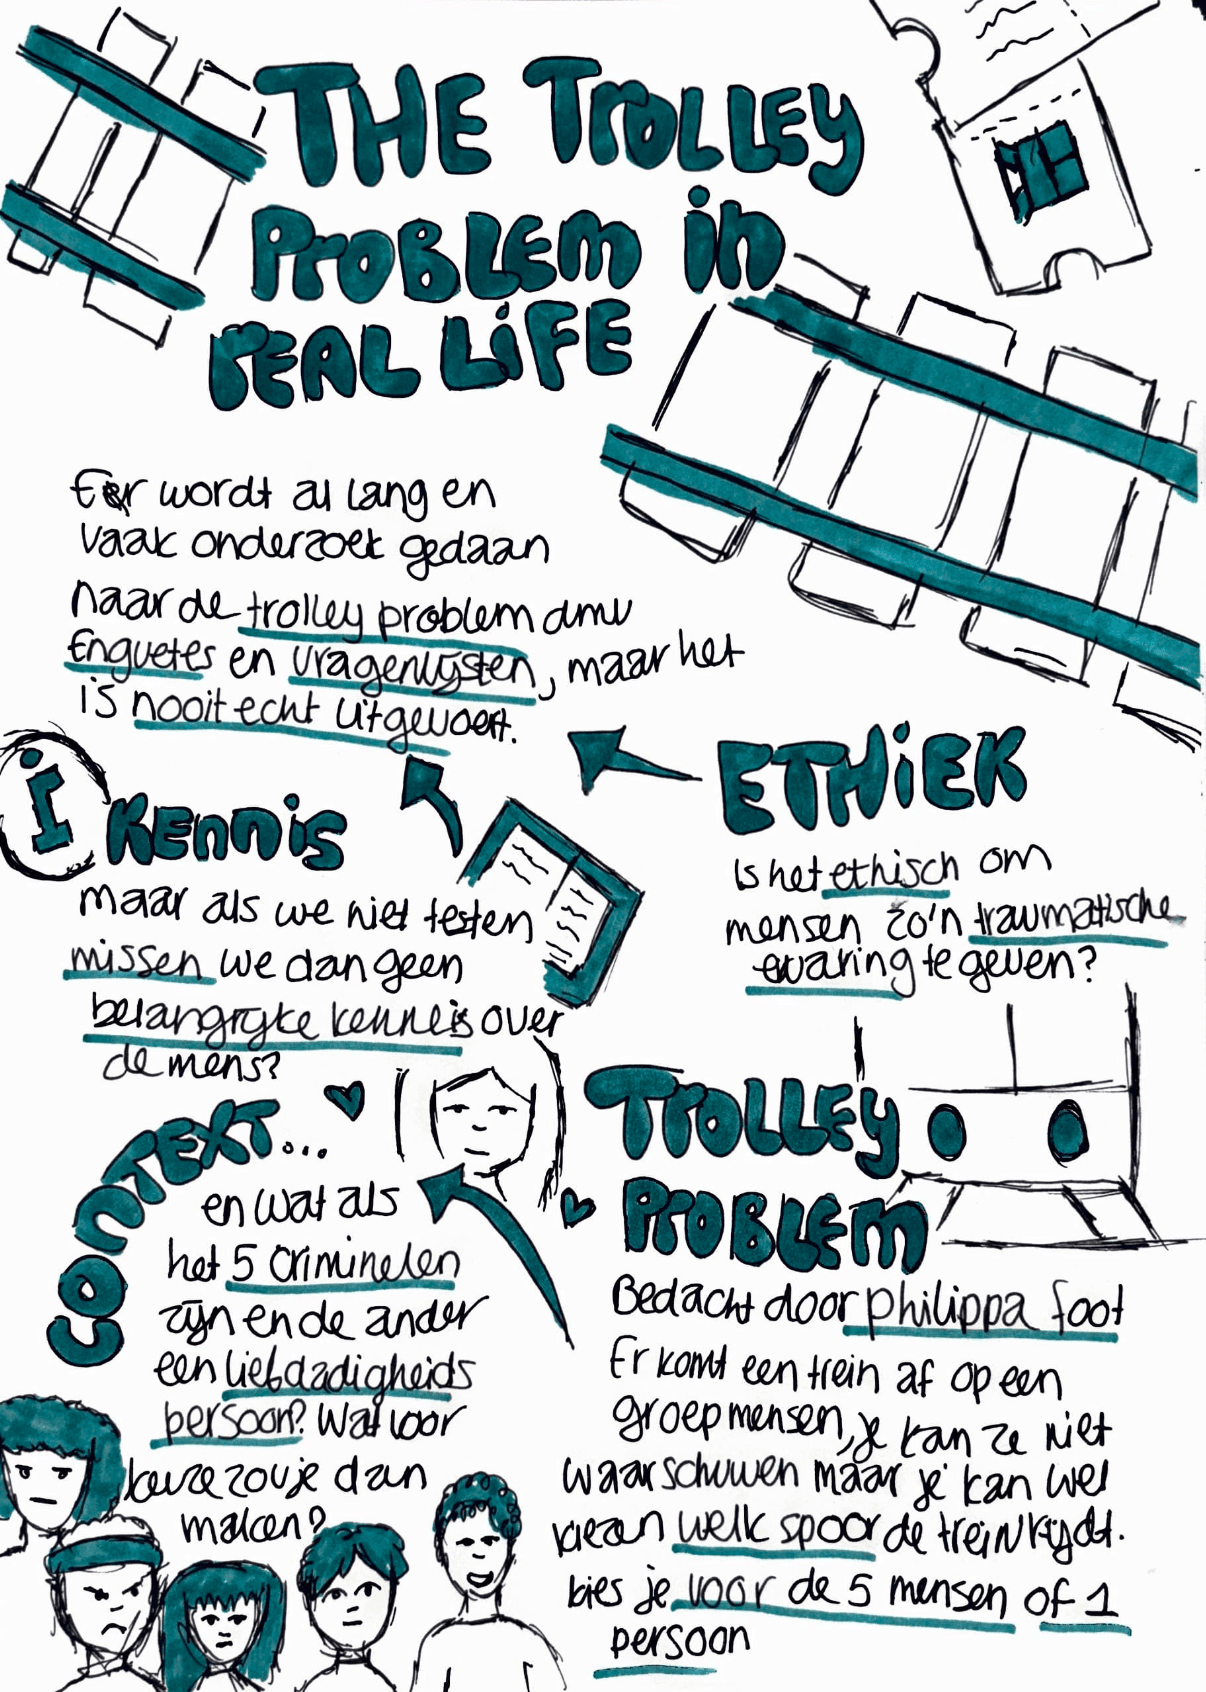 THE Trolley
Problem in
real Life
Er wordt al lang en
vaak onderzoek gedaan
naar de trolley problem dmv
Enquetes en vragenlijsten, maar het
is nooit echt uitgevoert.
ETHiEK
Is het ethisch om
mensen zo'n traumatische
ervaring te geven?
i
Kennis
maar als we niet testen
missen we dan geen
belangrijke kenneis over
de mens?
CONTEXT...
en wat als
het 5 criminelen
zijn en de ander
een liefdadigheids
persoon? Wat voor
keuze zou je dan
maken?
Trolley
Problem
Bedacht door philippa foot
Er komt een trein af op een
groep mensen, je kan ze niet
waarschuwen maar je kan wel
kiezen welk spoor de trein rijdt.
kies je voor de 5 mensen of 1
persoon